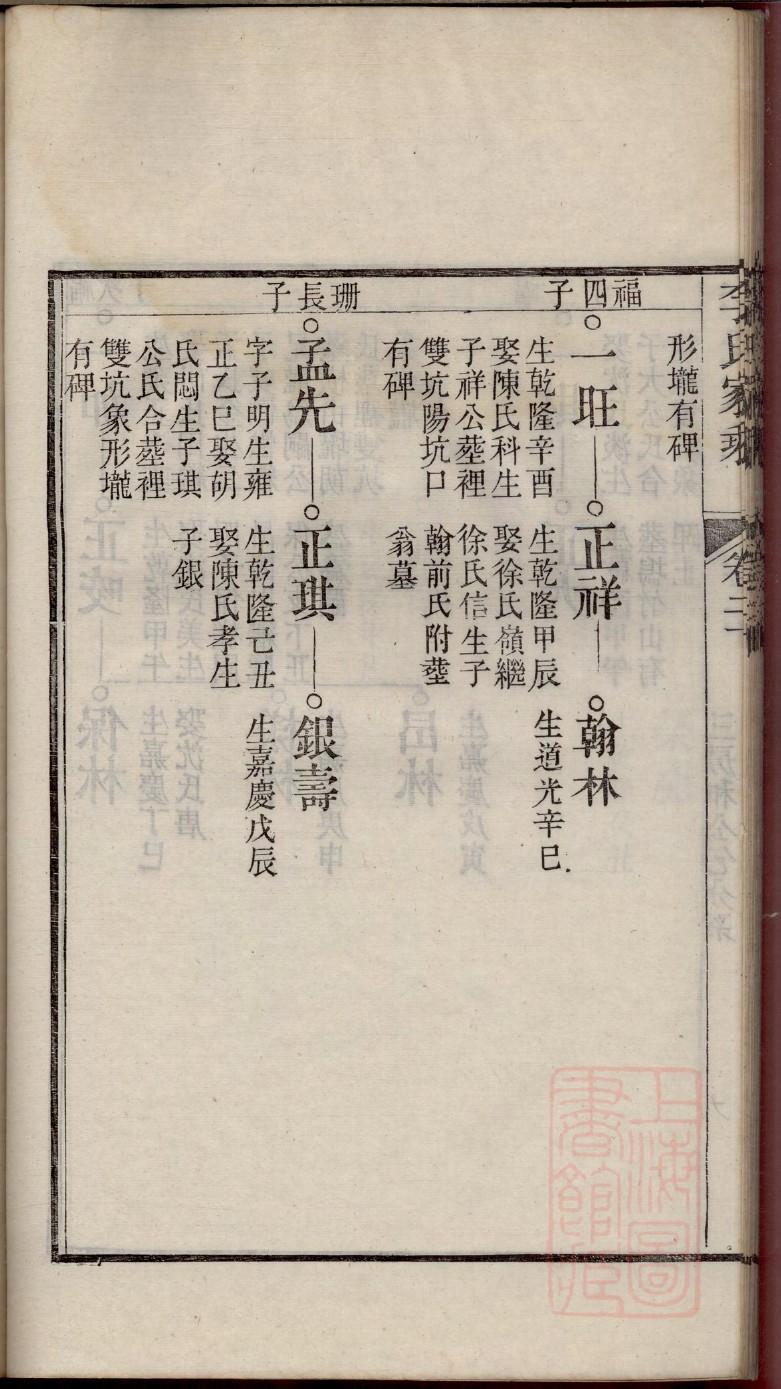 李氏家乘
卷二
形壠有碑
福四子
一旺
生乾隆辛酉
娶陳氏科生
子祥公塟裡
雙坑陽坑口
有碑
正祥
生乾隆甲辰
娶徐氏嶺繼
徐氏信生子
翰前氏附塟
翁墓
翰林
生道光辛巳
珊長子
孟先
字子明生雍
正乙巳娶胡
氏悶生子琪
公氏合塟裡
雙坑象形壠
有碑
正琪
生乾隆己丑
娶陳氏孝生
子銀
銀壽
生嘉慶戊辰
上海圖
書館藏